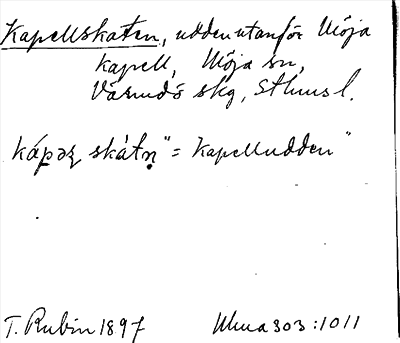 Kapellskaten, udden utanför Möja
kapell, Möja sn,
Värmdö skg, Sthms l.
kápəʟ skátn̥ "= Kapelludden"
T. Rubin 1897 Ulma 303:1011